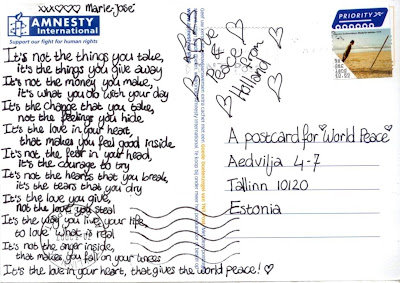 xoxoxo Marie-José
AMNESTY
International
Support our fight for human rights
It's not the things you take,
it's the things you give away
It's not the money you make,
it's what you do with your day
It's the change that you take,
not the feelings you hide
It's the love in your heart,
that makes you feel good inside
It's not the fear in your head,
it's the courage to try
It's not the hearts that you break,
it's the tears that you dry
It's the love you give,
not the love you steal
It's the way you live your life,
to love what is real
It's not the anger inside,
that makes you fall on your knees
It's the love in your heart, that gives the world peace!
Love
&
Peace
from
Holland
PRIORITY
A postcard for World Peace
Aedvilja 4-7
Tallinn 10120
Estonia